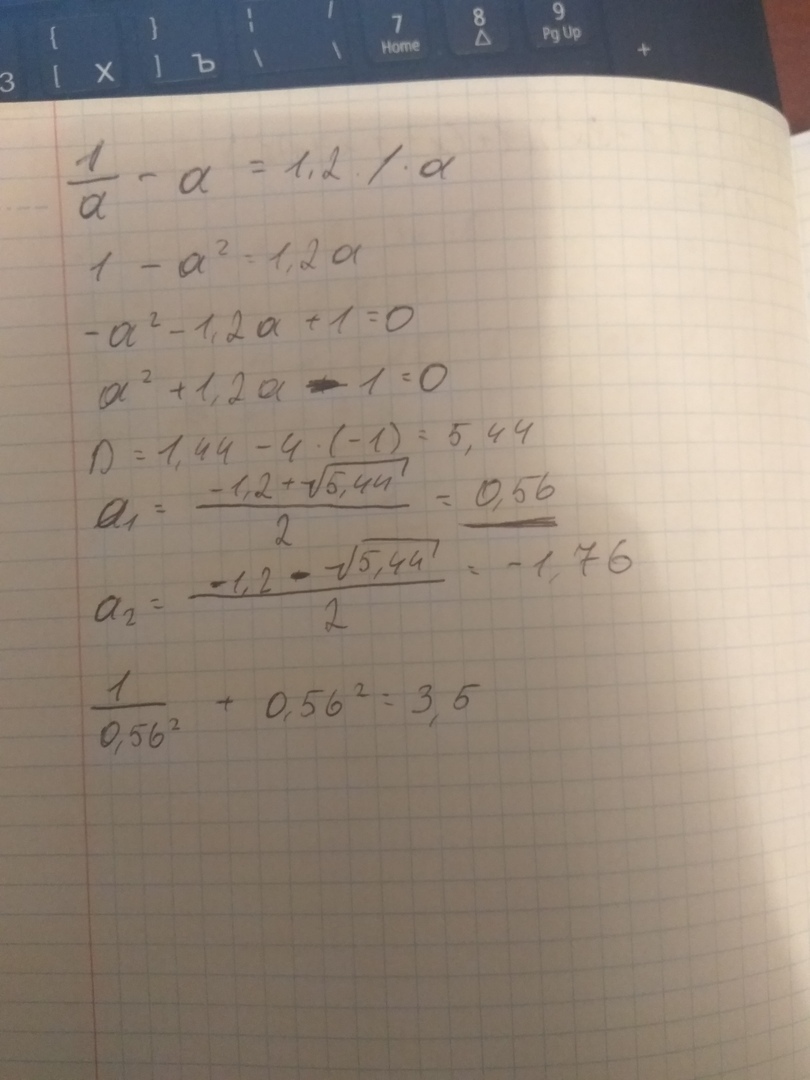 { } ¦ / 7 8 9
З [ Х ] Ъ \ \ Home △ Pg Up +
1/a - a = 1,2 · / · a
1 - a² = 1,2a
-a² - 1,2a + 1 = 0
a² + 1,2a - 1 = 0
D = 1,44 - 4 · (-1) = 5,44
a₁ = (-1,2 + √5,44)/2 = 0,56
a₂ = (-1,2 - √5,44)/2 = -1,76
1/0,56² + 0,56² = 3,5